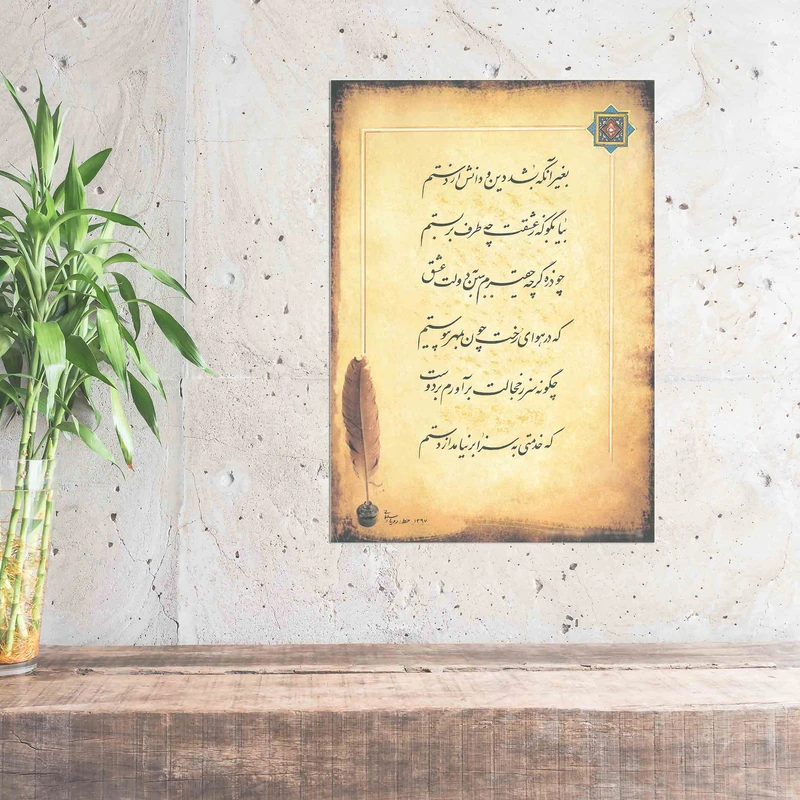 بغیر آنکه بشد دین و دانش از دستم
بیا بگو که ز عشقت چه طرف بربستم
چو ذره گرچه حقیرم ببین بدولت عشق
که در هوای رخت چون بمهر پیوستم
چگونه سر ز خجالت برآورم بر دوست
که خدمتی به سزا برنیامد از دستم
۱۳۹۷ خط: